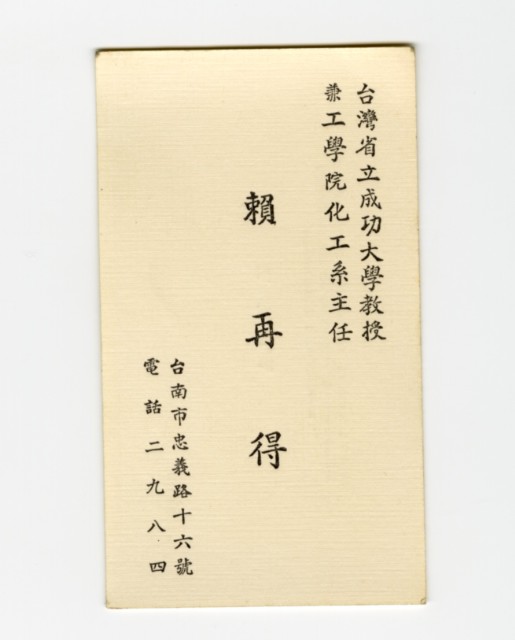 台灣省立成功大學教授
兼工學院化工系主任
賴再得
台南市忠義路十六號
電話二九八四